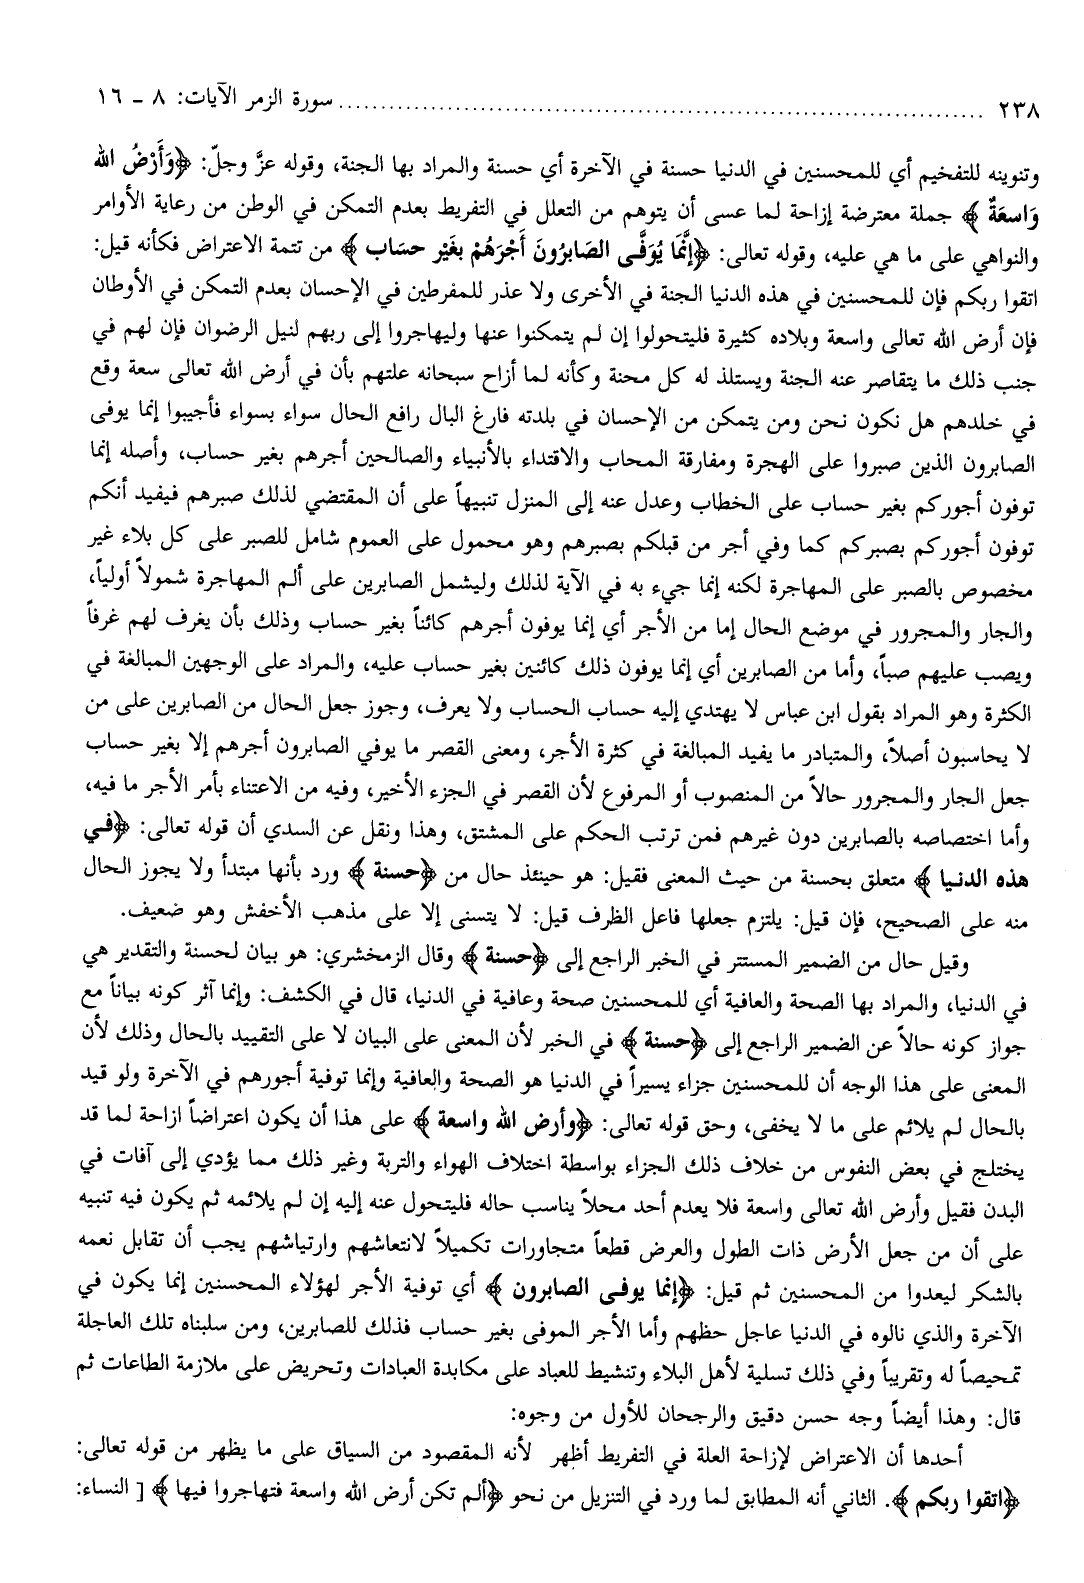 ٢٣٨ ........................................................................ سورة الزمر الآيات: ٨ ـ ١٦
وتنوينه للتفخيم أي للمحسنين في الدنيا حسنة في الآخرة أي حسنة والمراد بها الجنة، وقوله عزَّ وجلّ: ﴿وَأَرْضُ الله
وَاسعَةٌ﴾ جملة معترضة إزاحة لما عسى أن يتوهم من التعلل في التفريط بعدم التمكن في الوطن من رعاية الأوامر
والنواهي على ما هي عليه، وقوله تعالى: ﴿إنَّمَا يُوَفَّى الصَابرُونَ أَجْرَهُمْ بغَيْر حسَاب﴾ من تتمة الاعتراض فكأنه قيل:
اتقوا ربكم فإن للمحسنين في هذه الدنيا الجنة في الأخرى ولا عذر للمفرطين في الإحسان بعدم التمكن في الأوطان
فإن أرض الله تعالى واسعة وبلاده كثيرة فليتحولوا إن لم يتمكنوا عنها وليهاجروا إلى ربهم لنيل الرضوان فإن لهم في
جنب ذلك ما يتقاصر عنه الجنة ويستلذ له كل محنة وكأنه لما أزاح سبحانه علتهم بأن في أرض الله تعالى سعة وقع
في خلدهم هل نكون نحن ومن يتمكن من الإحسان في بلدته فارغ البال رافع الحال سواء بسواء فأجيبوا إنما يوفى
الصابرون الذين صبروا على الهجرة ومفارقة المحاب والاقتداء بالأنبياء والصالحين أجرهم بغير حساب، وأصله إنما
توفون أجوركم بغير حساب على الخطاب وعدل عنه إلى المنزل تنبيهاً على أن المقتضي لذلك صبرهم فيفيد أنكم
توفون أجوركم بصبركم كما وفي أجر من قبلكم بصبرهم وهو محمول على العموم شامل للصبر على كل بلاء غير
مخصوص بالصبر على المهاجرة لكنه إنما جيء به في الآية لذلك وليشمل الصابرين على ألم المهاجرة شمولاً أولياً،
والجار والمجرور في موضع الحال إما من الأجر أي إنما يوفون أجرهم كائناً بغير حساب وذلك بأن يغرف لهم غرفاً
ويصب عليهم صباً، وأما من الصابرين أي إنما يوفون ذلك كائنين بغير حساب عليه، والمراد على الوجهين المبالغة في
الكثرة وهو المراد بقول ابن عباس لا يهتدي إليه حساب الحساب ولا يعرف، وجوز جعل الحال من الصابرين على من
لا يحاسبون أصلاً، والمتبادر ما يفيد المبالغة في كثرة الأجر، ومعنى القصر ما يوفي الصابرون أجرهم إلا بغير حساب
جعل الجار والمجرور حالاً من المنصوب أو المرفوع لأن القصر في الجزء الأخير، وفيه من الاعتناء بأمر الأجر ما فيه،
وأما اختصاصه بالصابرين دون غيرهم فمن ترتب الحكم على المشتق، وهذا ونقل عن السدي أن قوله تعالى: ﴿في
هذه الدنيا﴾ متعلق بحسنة من حيث المعنى فقيل: هو حينئذ حال من ﴿حسنة﴾ ورد بأنها مبتدأ ولا يجوز الحال
منه على الصحيح، فإن قيل: يلتزم جعلها فاعل الظرف قيل: لا يتسنى إلا على مذهب الأخفش وهو ضعيف.
وقيل حال من الضمير المستتر في الخبر الراجع إلى ﴿حسنة﴾ وقال الزمخشري: هو بيان لحسنة والتقدير هي
في الدنيا، والمراد بها الصحة والعافية أي للمحسنين صحة وعافية في الدنيا، قال في الكشف: وإنما آثر كونه بياناً مع
جواز كونه حالاً عن الضمير الراجع إلى ﴿حسنة﴾ في الخبر لأن المعنى على البيان لا على التقييد بالحال وذلك لأن
المعنى على هذا الوجه أن للمحسنين جزاء يسيراً في الدنيا هو الصحة والعافية وإنما توفية أجورهم في الآخرة ولو قيد
بالحال لم يلائم على ما لا يخفى، وحق قوله تعالى: ﴿وأرض الله واسعة﴾ على هذا أن يكون اعتراضاً ازاحة لما قد
يختلج في بعض النفوس من خلاف ذلك الجزاء بواسطة اختلاف الهواء والتربة وغير ذلك مما يؤدي إلى آفات في
البدن فقيل وأرض الله تعالى واسعة فلا يعدم أحد محلاً يناسب حاله فليتحول عنه إليه إن لم يلائمه ثم يكون فيه تنبيه
على أن من جعل الأرض ذات الطول والعرض قطعاً متجاورات تكميلاً لانتعاشهم وارتياشهم يجب أن تقابل نعمه
بالشكر ليعدوا من المحسنين ثم قيل: ﴿إنما يوفى الصابرون﴾ أي توفية الأجر لهؤلاء المحسنين إنما يكون في
الآخرة والذي نالوه في الدنيا عاجل حظهم وأما الأجر الموفى بغير حساب فذلك للصابرين، ومن سلبناه تلك العاجلة
تمحيصاً له وتقريباً وفي ذلك تسلية لأهل البلاء وتنشيط للعباد على مكابدة العبادات وتحريض على ملازمة الطاعات ثم
قال: وهذا أيضاً وجه حسن دقيق والرجحان للأول من وجوه:
أحدها أن الاعتراض لإزاحة العلة في التفريط أظهر لأنه المقصود من السياق على ما يظهر من قوله تعالى:
﴿اتقوا ربكم﴾. الثاني أنه المطابق لما ورد في التنزيل من نحو ﴿ألم تكن أرض الله واسعة فتهاجروا فيها﴾ [ النساء: